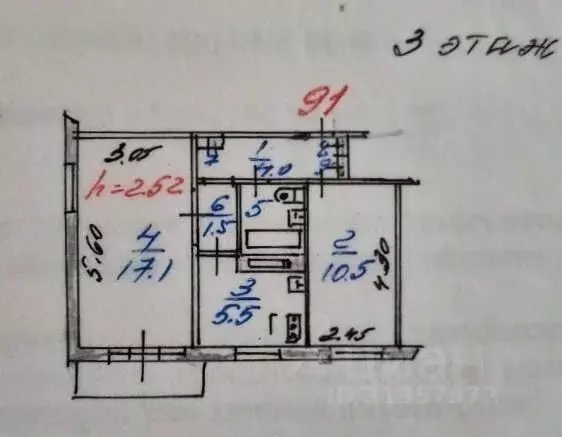 3 этаж
91
3.05
h=2.52
5.60
4
17.1
7
1
4.0
8
9
6
1.5
5
3
5.5
2
10.5
4.30
2.45